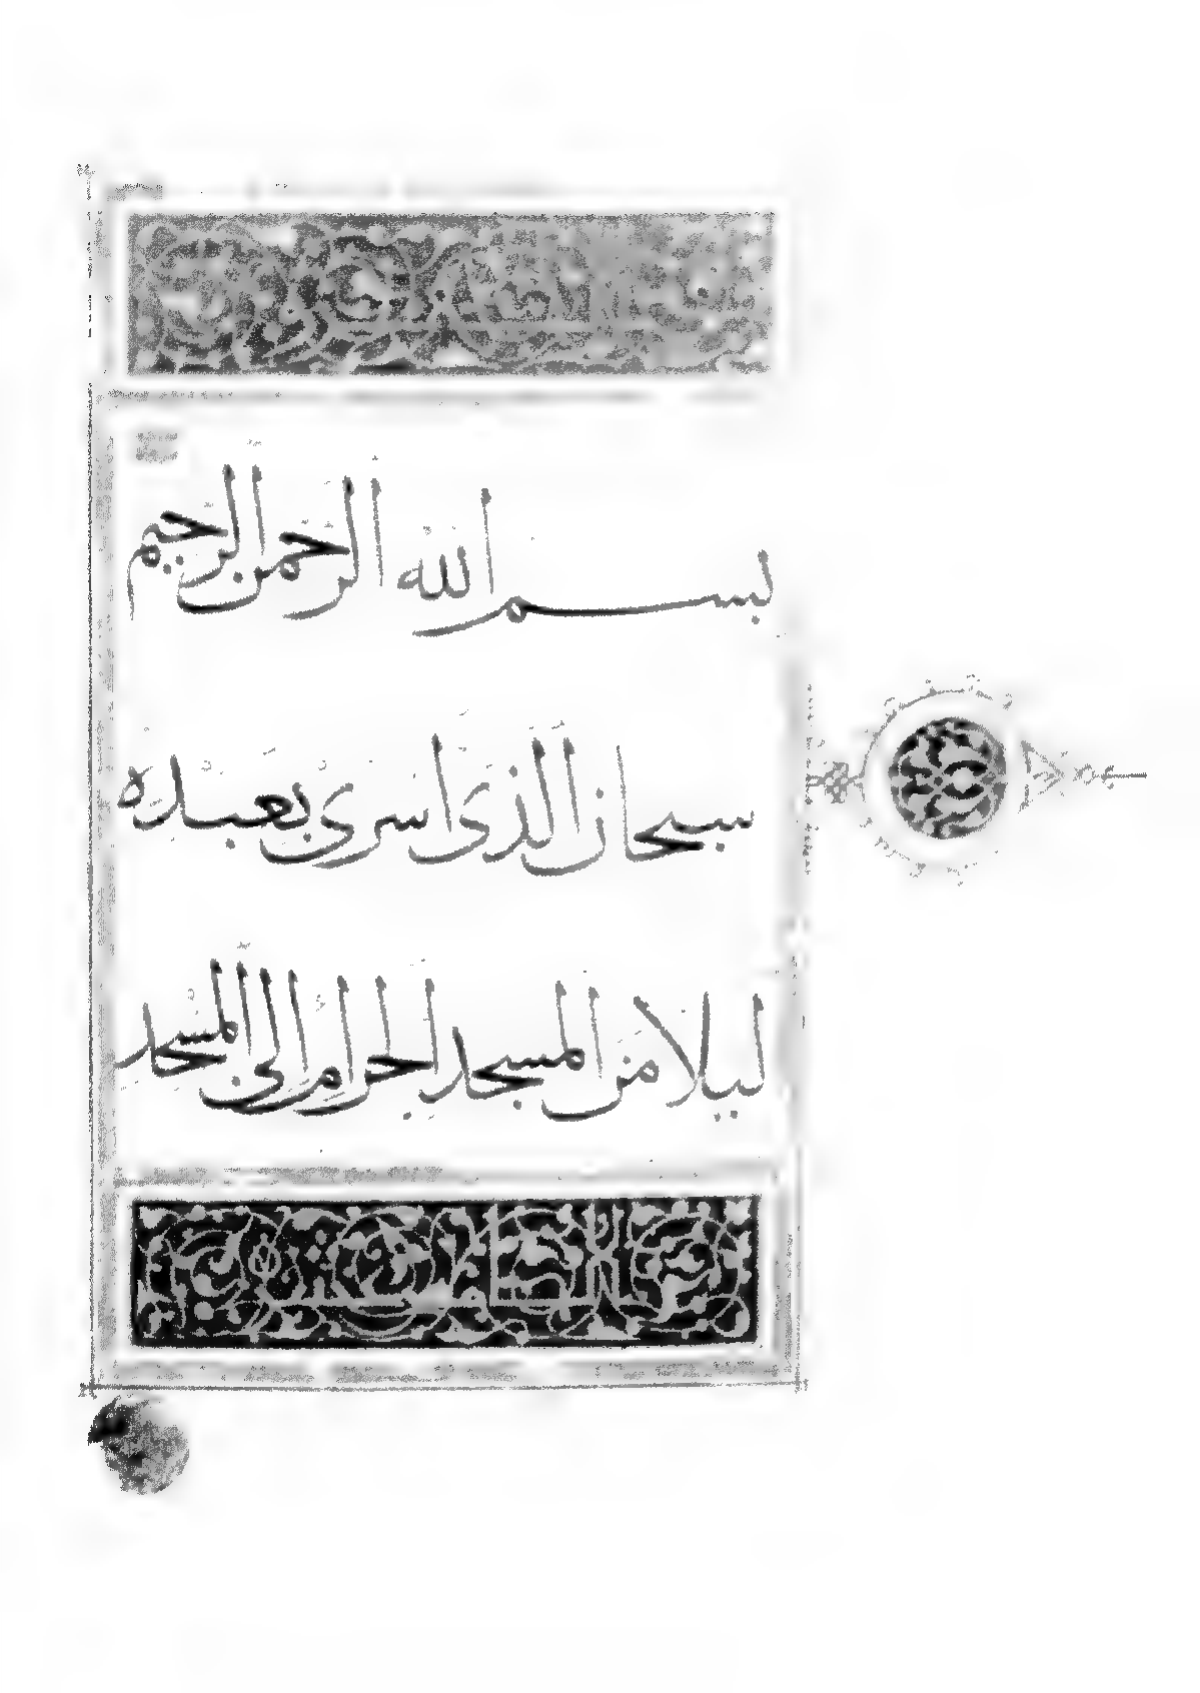 بسم الله الرحمن الرحيم
سبحان الذى اسرى بعبده
ليلا من المسجد الحرام الى المسجد